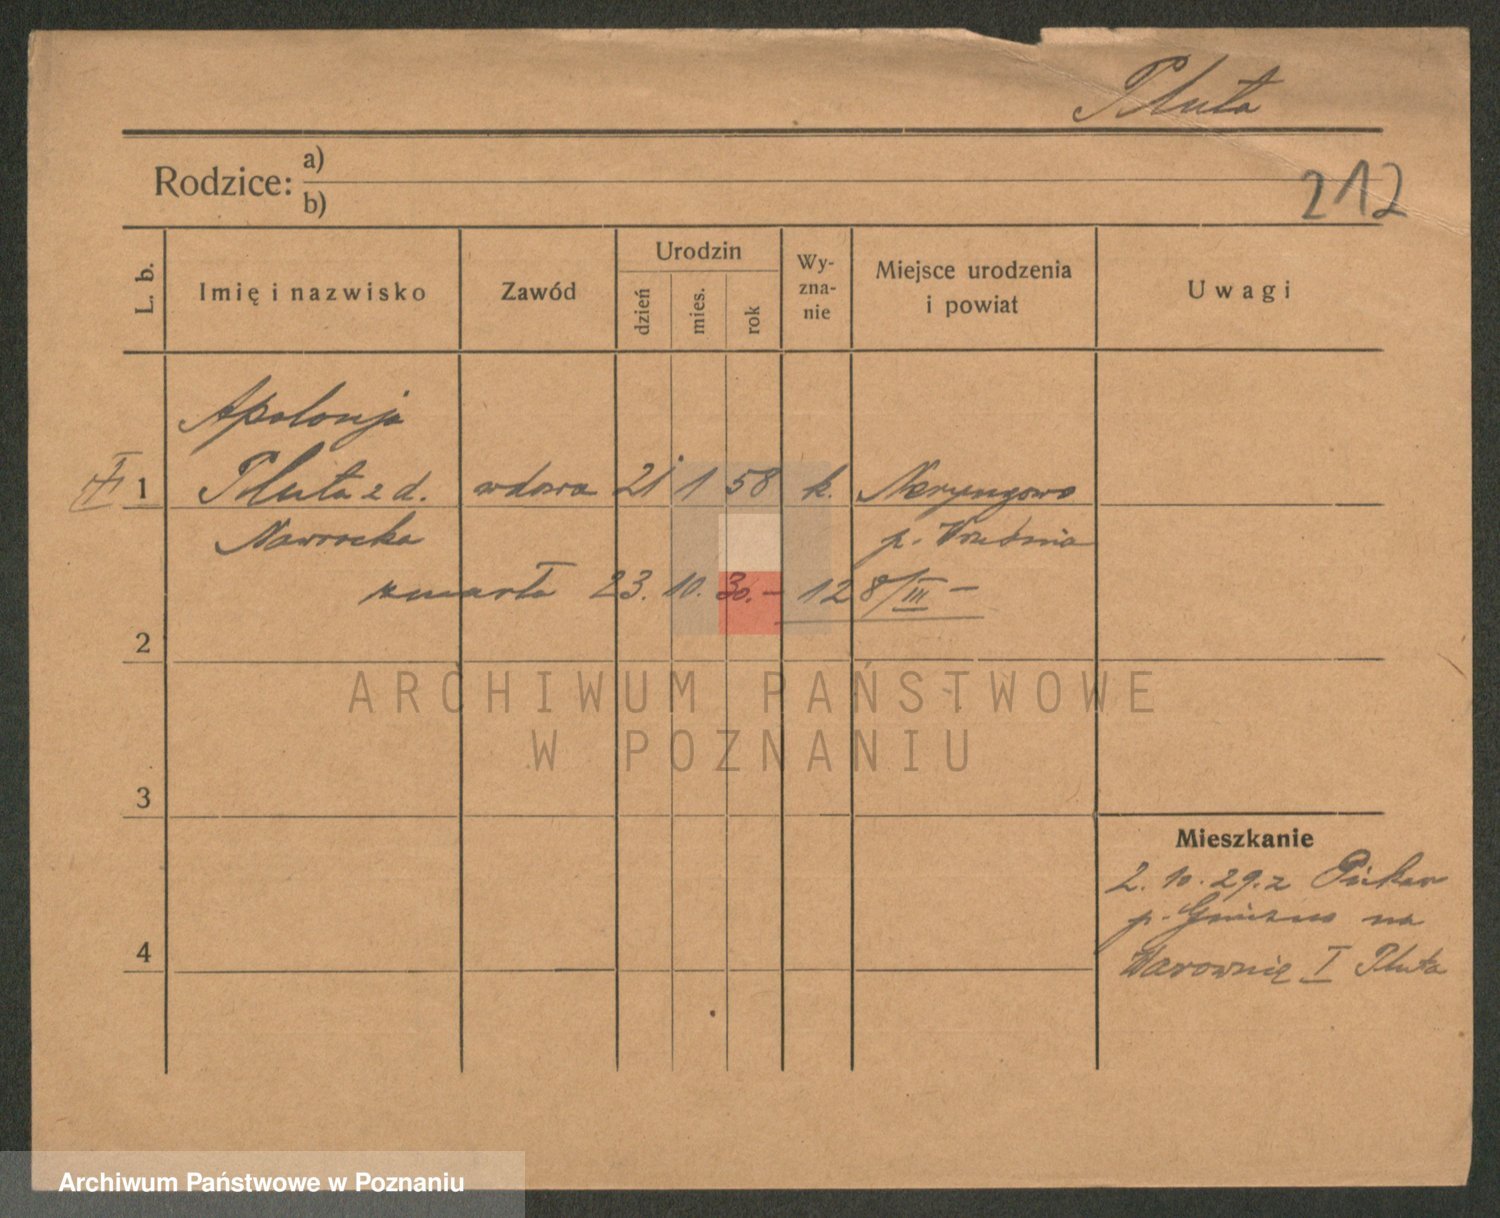 Pluta
Rodzice: a)
b)
212
L. b.
Imię i nazwisko
Zawód
Urodzin
dzień
mies.
rok
Wy-
zna-
nie
Miejsce urodzenia
i powiat
Uwagi
Apolonja
1 Pluta z d. wdowa 21 1 58 k.
Nawrocka p. Września
zmarła 23. 10. 30. – 128/III –
2
ARCHIWUM PAŃSTWOWE
W POZNANIU
3
Mieszkanie
2. 10. 29. z
p. Gniezno na
4
Warownię I Pluta
Archiwum Państwowe w Poznaniu